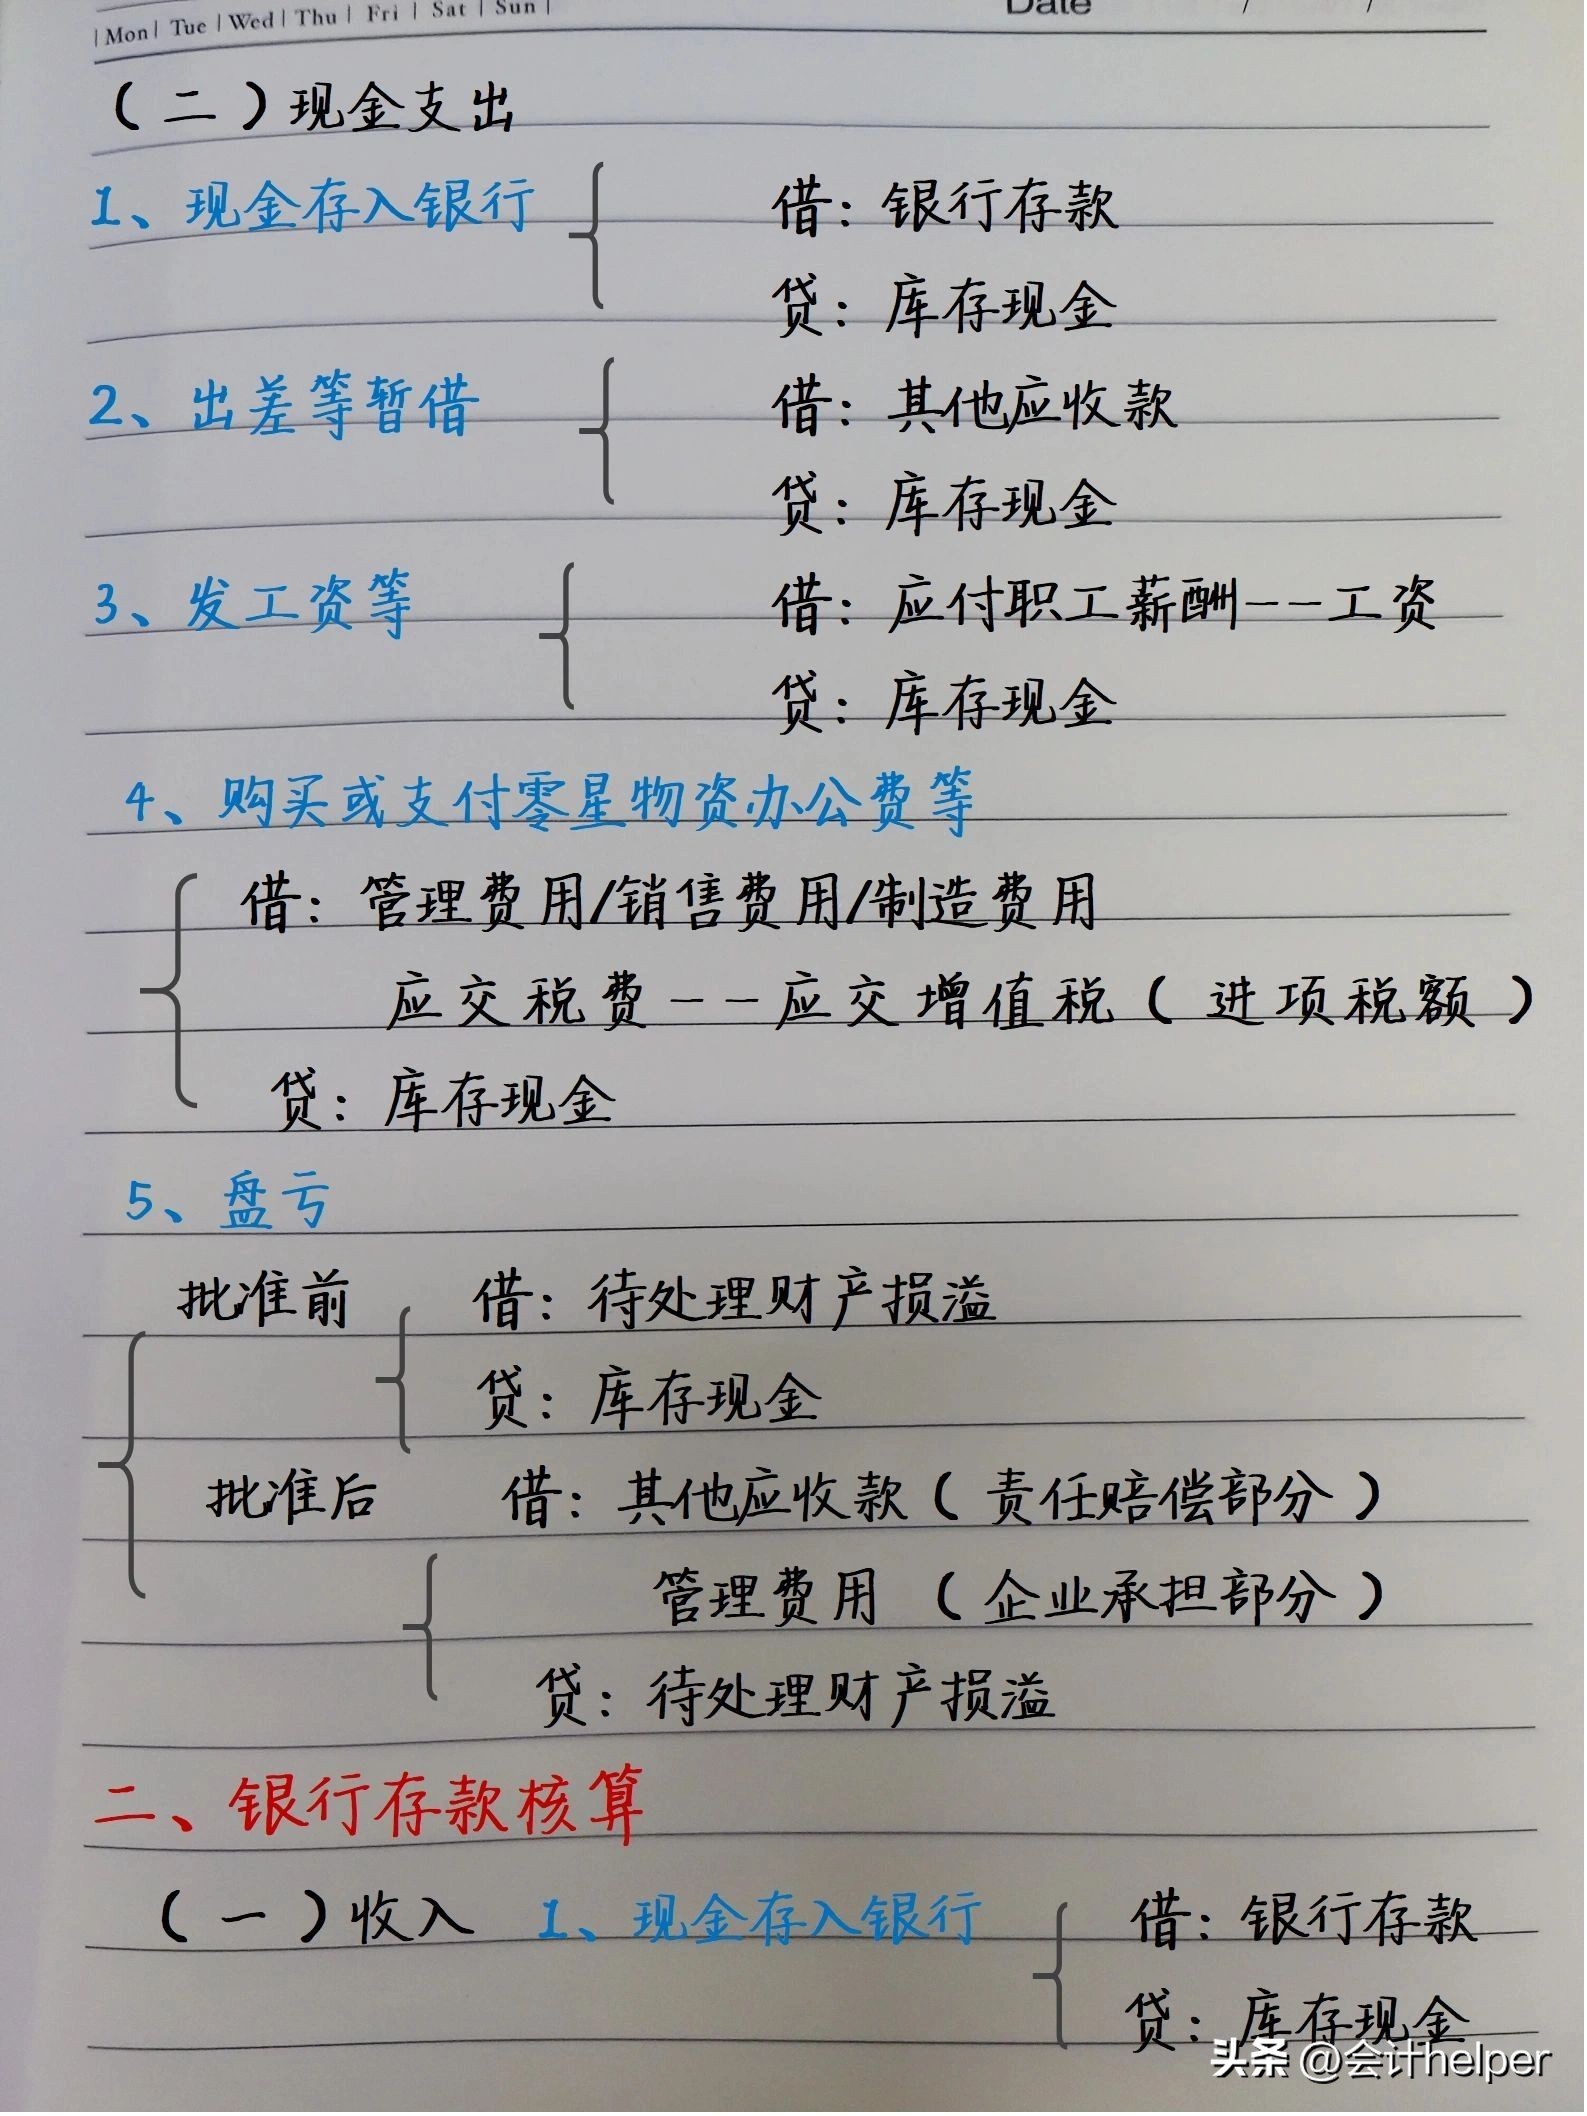 |Mon| Tue |Wed|Thu| Fri | Sat | Sun | Date / /
（二）现金支出
1、现金存入银行 借：银行存款
贷：库存现金
2、出差等暂借 借：其他应收款
贷：库存现金
3、发工资等 借：应付职工薪酬--工资
贷：库存现金
4、购买或支付零星物资办公费等
借：管理费用/销售费用/制造费用
应交税费--应交增值税（进项税额）
贷：库存现金
5、盘亏
批准前 借：待处理财产损溢
贷：库存现金
批准后 借：其他应收款（责任赔偿部分）
管理费用（企业承担部分）
贷：待处理财产损溢
二、银行存款核算
（一）收入 1、现金存入银行 借：银行存款
贷：库存现金
头条 @会计helper